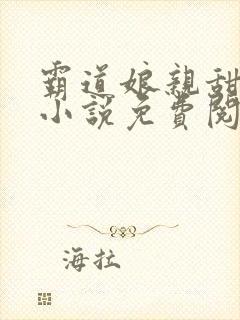 霸道娘親甜
小說免費閱
海拉